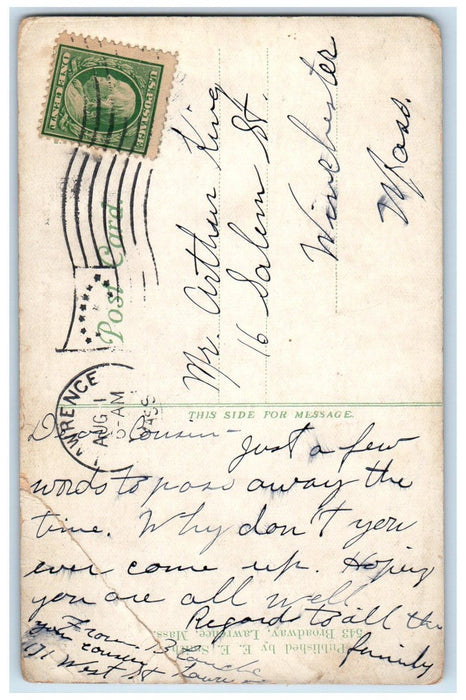 U.S. POSTAGE
ONE CENT
Post Card
LAWRENCE
AUG 1
-AM
MASS.
Mr. Arthur King
16 Salem St.
Winchester
Mass.
THIS SIDE FOR MESSAGE.
Dear Cousin-
Just a few
words to pass away the
time. Why don't you
ever come up. Hoping
you are all well
Regards to all the
family
From Blanche
your cousin
171 West St
Published by E. E. Smith
543 Broadway, Lawrence, Mass.